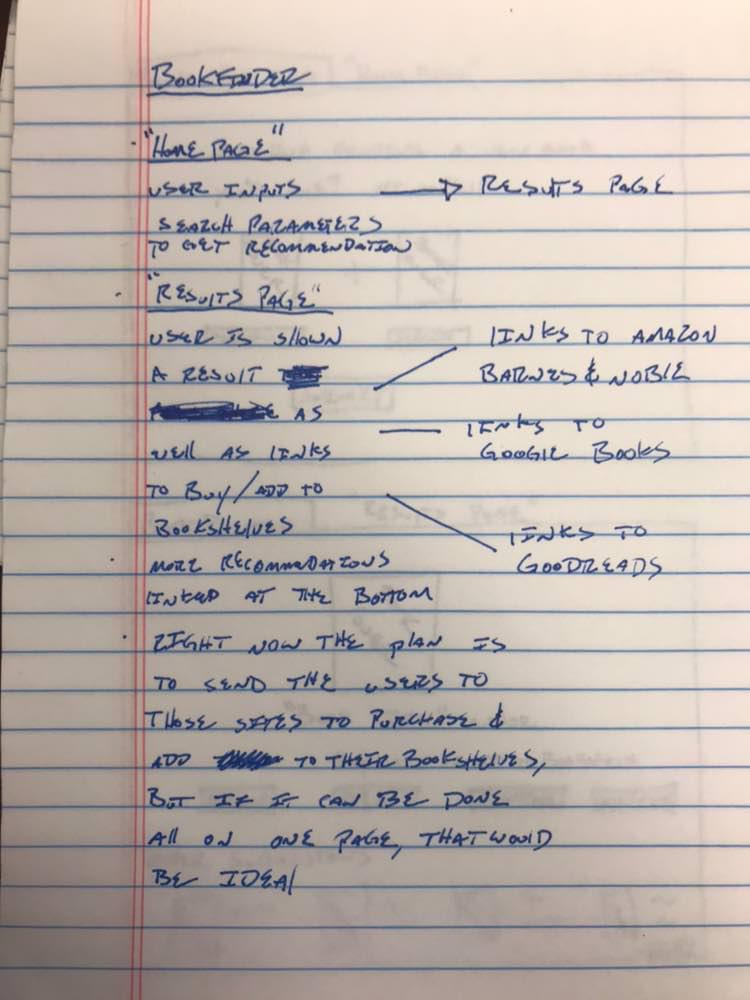 BOOKFINDER
"HOME PAGE"
USER INPUTS → RESULTS PAGE
SEARCH PARAMETERS
TO GET RECOMMENDATION
"RESULTS PAGE"
USER IS SHOWN
A RESULT
AS
WELL AS LINKS
TO BUY/ADD TO
BOOKSHELVES
LINKS TO AMAZON
BARNES & NOBLE
LINKS TO
GOOGLE BOOKS
LINKS TO
GOODREADS
MORE RECOMMENDATIONS
LINKED AT THE BOTTOM
RIGHT NOW THE PLAN IS
TO SEND THE USERS TO
THOSE SITES TO PURCHASE &
ADD TO THEIR BOOKSHELVES,
BUT IF IT CAN BE DONE
All ON ONE PAGE, THAT WOULD
BE IDEAl